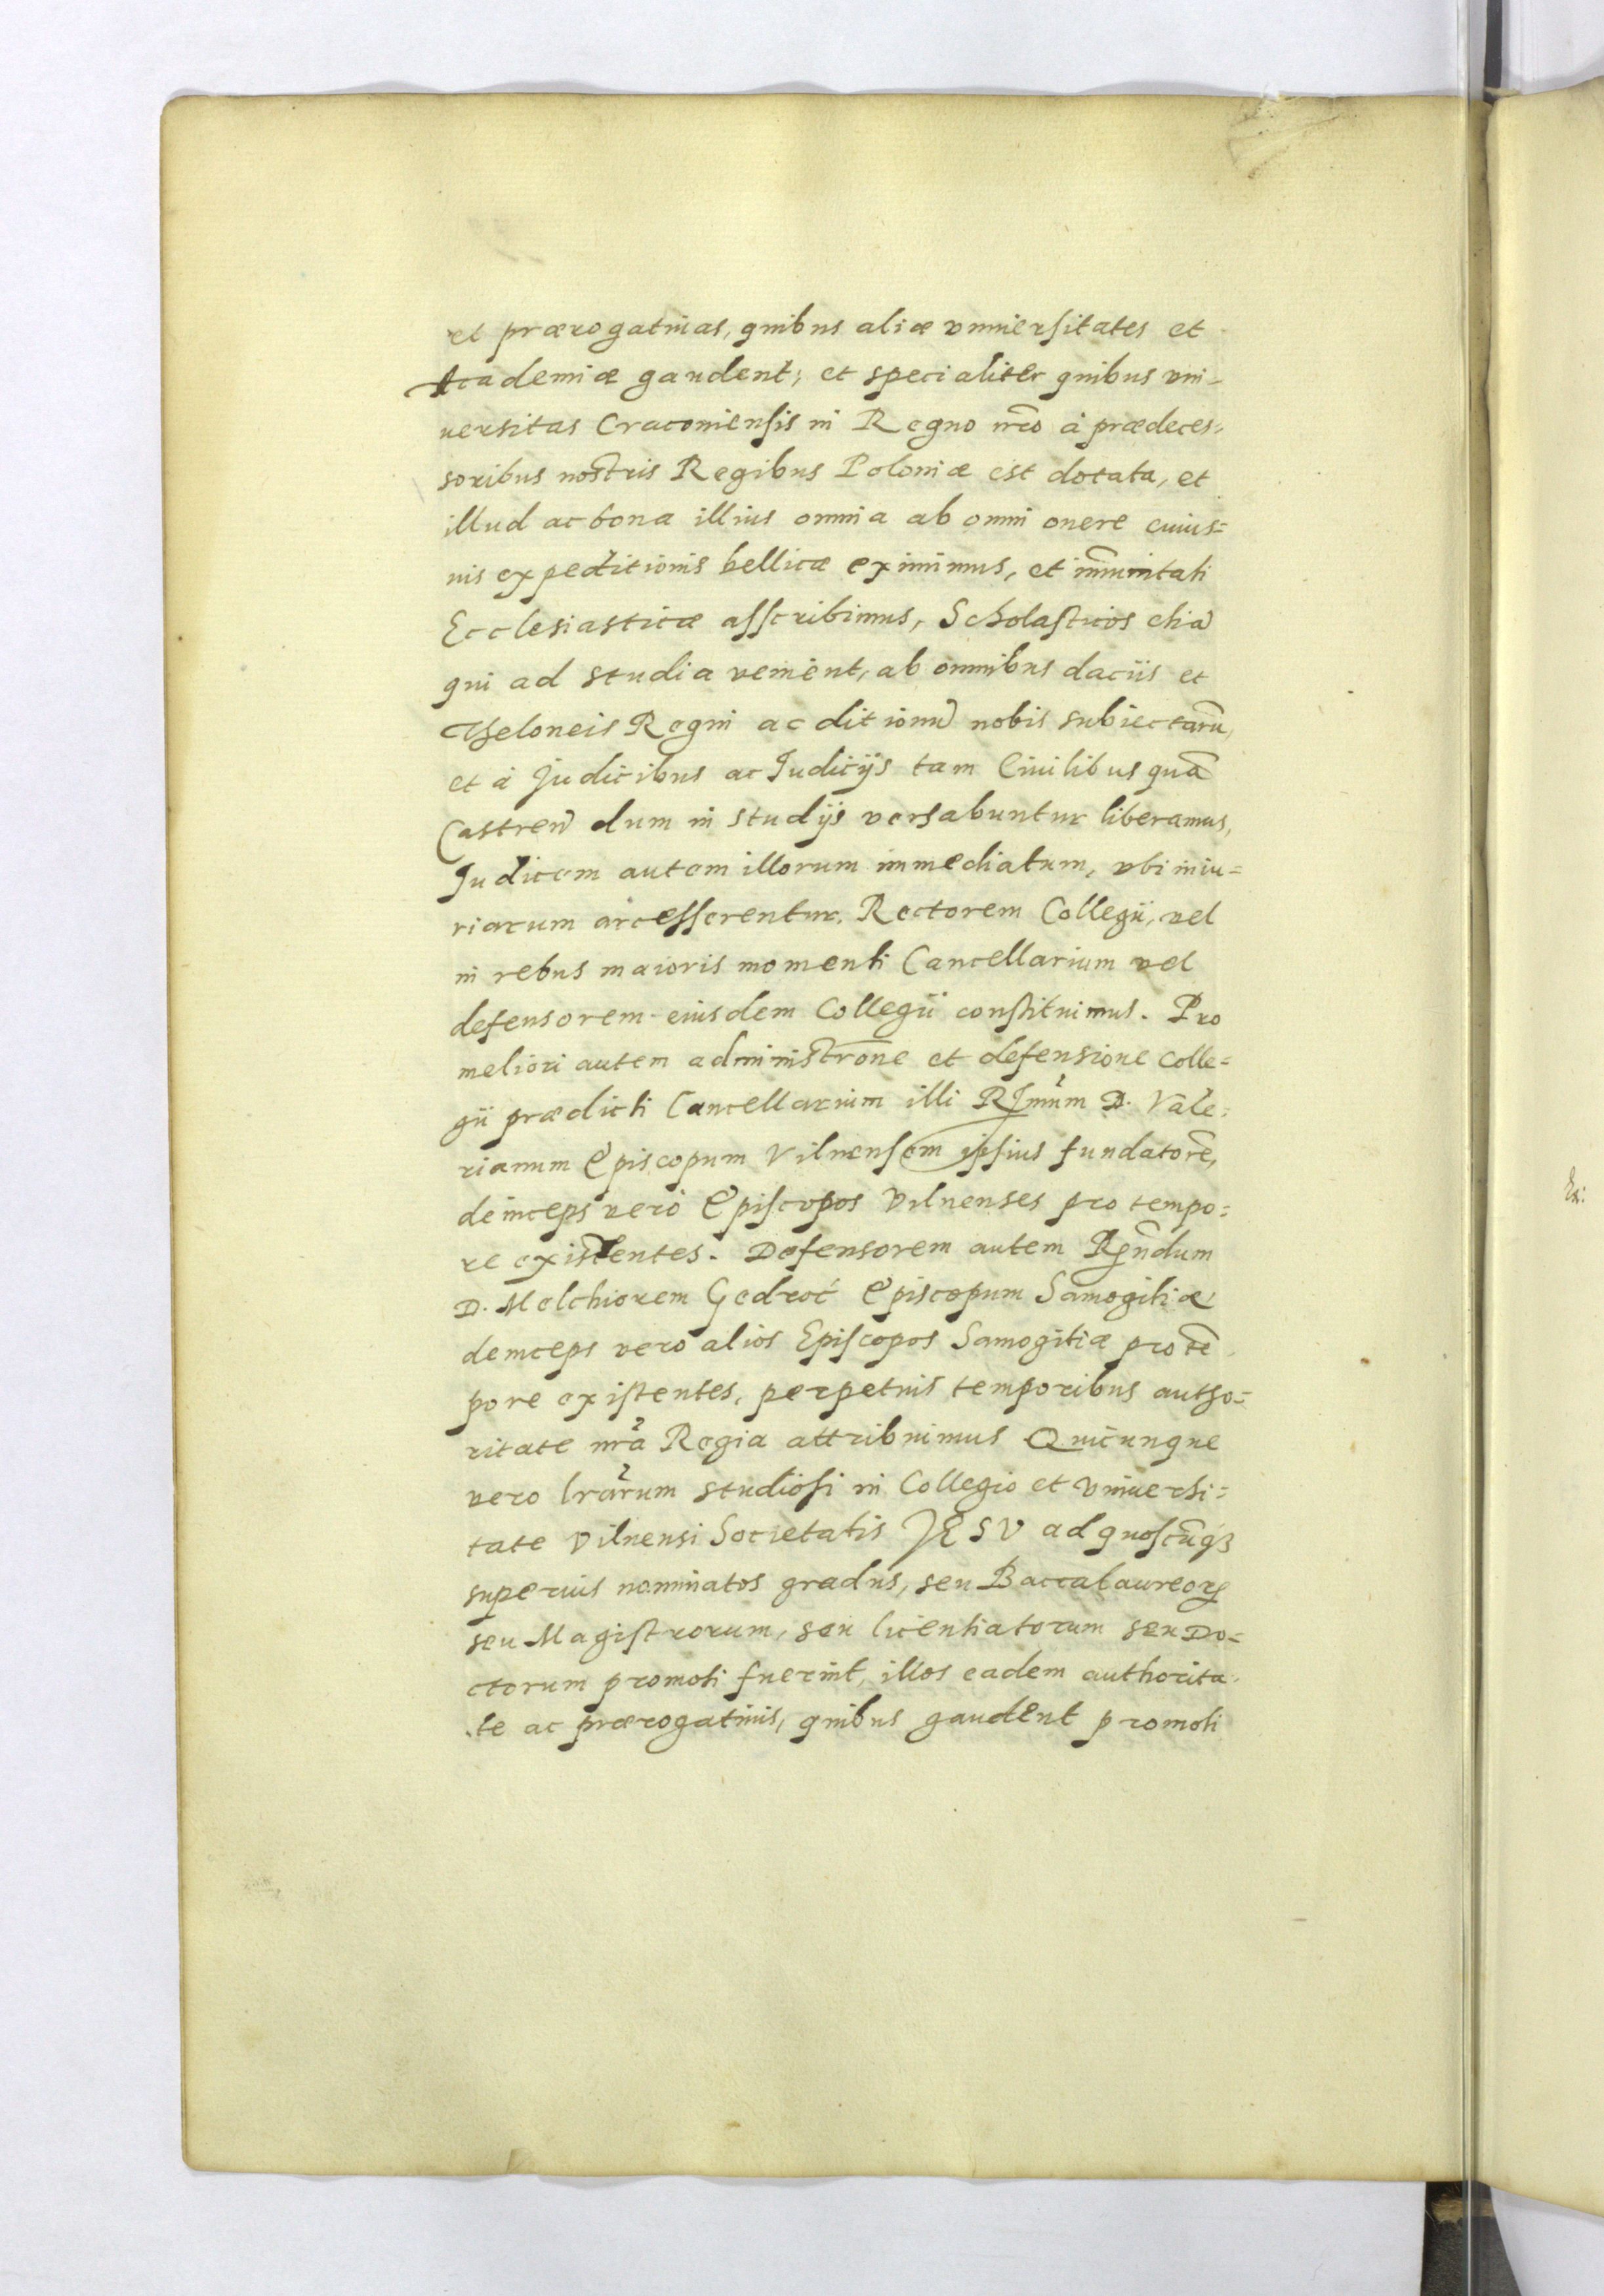 et prærogatiuas, quibus aliæ vniuersitates et
Academiæ gaudent; et specialiter quibus vni-
uersitas Cracouiensis in Regno nr̃o à prædeces-
soribus nostris Regibus Poloniæ est dotata, et
illud ac bona illius omnia ab omni onere cuius=
uis expeditionis bellicæ eximimus, et im̃unitati
Ecclesiasticæ asscribimus, Scholasticos etiã
qui ad studia venient, ab omnibus daciis et
Theloneis Regni ac ditionũ nobis subiectarũ,
et à Judicibus ac Iudicijs tam Ciuilibus quã
Castreñ dum in studijs versabuntur liberamus,
Judicem autem illorum immediatum, vbi iniu=
riarum arcesserentur, Rectorem Collegii, vel
in rebus maioris momenti Cancellarium vel
defensorem eiusdem Collegii constituimus. Pro
meliori autem administrõne et defensione Colle=
gii prædicti Cancellarium illi Rm̃um D. Vale=
rianum Episcopum Vilnensem ipsius fundatorẽ,
deinceps verò Episcopos Vilnenses pro tempo=
re existentes. Defensorem autem Rñdum
D. Melchiorem Gedroć Episcopum Samogitiæ
deinceps vero alios Episcopos Samogitiæ pro tẽ
pore existentes, perpetuis temporibus autho=
ritate nr̃a Regia attribuimus Quicunque
vero lrãrum studiosi in Collegio et Vniuersi=
tate Vilnensi Societatis JESV ad quoscũq3
superius nominatos gradus, seu Baccalaureoꝝ
seu Magistrorum, seu licentiatorum seu Do=
ctorum promoti fuerint, illos eadem authorita-
te ac prærogatiuis, quibus gaudent promoti
Ex: